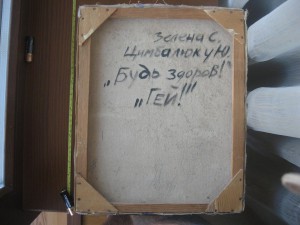 Зелена С.
Цимбалюк у Ю.
„Будь здоров!"
„Гей!"